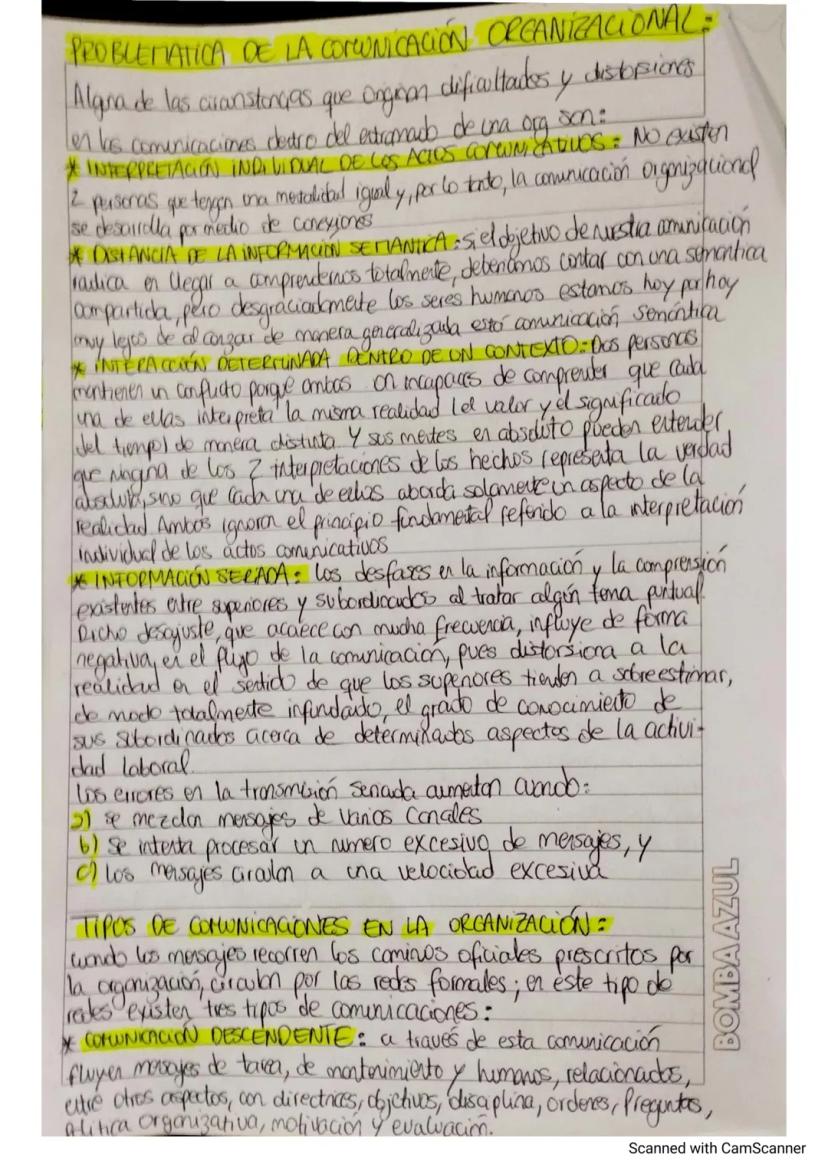 PROBLEMATICA DE LA COMUNICACIÓN ORGANIZACIONAL:
Alguna de las circunstancias que originan dificultades y distorsiones
en las comunicaciones dentro del entramado de una org son:
* INTERPRETACIÓN INDIVIDUAL DE LOS ACTOS COMUNICATIVOS: No existen
2 personas que tengan una mentalidad igual y, por lo tanto, la comunicación organizacional
se desarrolla por medio de conexiones
* DISTANCIA DE LA INFORMACIÓN SEMANTICA: si el objetivo de nuestra comunicación
radica en llegar a comprendernos totalmente, deberiamos contar con una semantica
compartida, pero desgraciadamente los seres humanos estamos hoy por hoy
muy lejos de alcanzar de manera generalizada está comunicación semántica
* INTERACCIÓN DETERMINADA DENTRO DE UN CONTEXTO: Dos personas
mantienen un conflicto porque ambas on incapaces de comprender que cada
una de ellas interpreta la misma realidad (el valor y el significado
del tiempo) de manera distinta y sus mentes en absoluto pueden entender
que ninguna de los 2 interpretaciones de los hechos representa la verdad
absoluta, sino que cada una de ellos aborda solamente un aspecto de la
realidad Ambos ignoran el principio fundamental referido a la interpretación
individual de los actos comunicativos
* INFORMACIÓN SERIADA: los desfases en la información y la comprensión
existentes entre superiores y subordinados al tratar algún tema puntual.
Dicho desajuste, que acaece con mucha frecuencia, influye de forma
negativa, en el flujo de la comunicación, pues distorsiona a la
realidad en el sentido de que los superiores tienden a sobreestimar,
de modo totalmente infundado, el grado de conocimiento de
sus subordinados acerca de determinados aspectos de la activi-
dad laboral.
Los errores en la transmisión seriada aumentan cuando:
a) se mezclan mensajes de varios canales
b) se intenta procesar un numero excesivo de mensajes, y
c) los mensajes circulan a una velocidad excesiva
TIPOS DE COMUNICACIONES EN LA ORGANIZACIÓN:
cuando los mensajes recorren los caminos oficiales prescritos por
la organización, circulan por las redes formales; en este tipo de
redes existen tres tipos de comunicaciones:
* COMUNICACIÓN DESCENDENTE: a través de esta comunicación
fluyen mensajes de tarea, de mantenimiento y humanos, relacionados,
entre otros aspectos, con directrices, objetivos, disciplina, ordenes, Preguntas,
política organizativa, motivación y evaluación.
BOMBA AZUL
Scanned with CamScanner